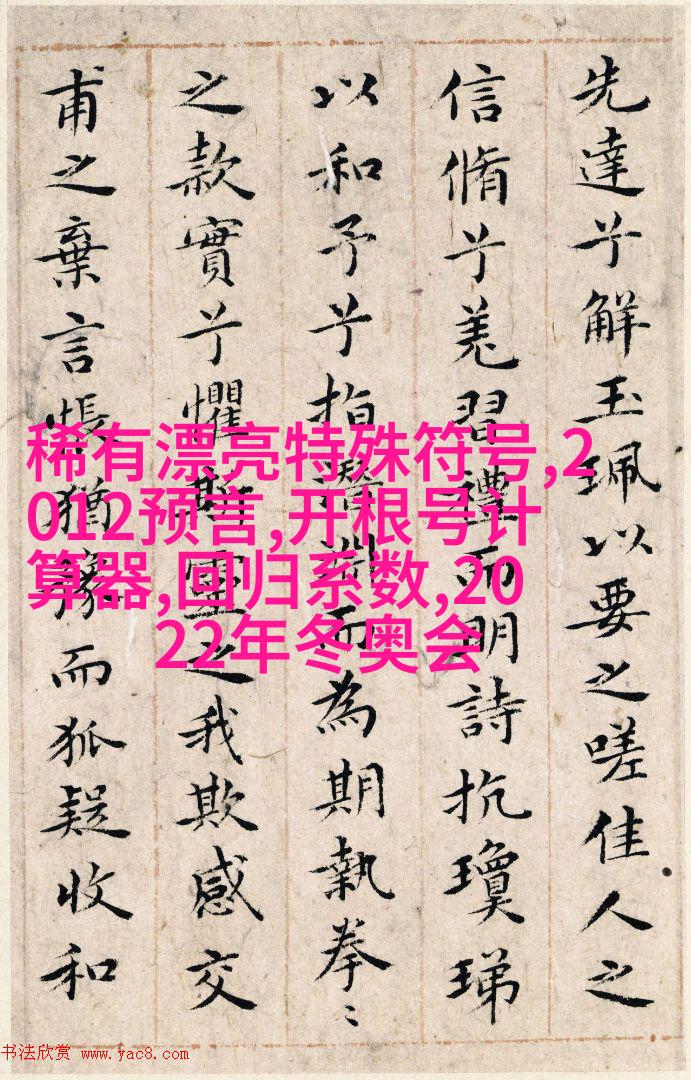 先達兮解玉珮以要之嗟佳人之
信脩兮羌習禮而明詩抗瓊珶
以和予兮指潛淵而為期執拳〻
之款實兮懼斯靈之我欺感交
甫之棄言悵猶豫而狐疑收和
稀有漂亮特殊符号,2
012预言,开根号计
算器,回归系数,20
22年冬奥会
书法欣赏 www.yac8.com